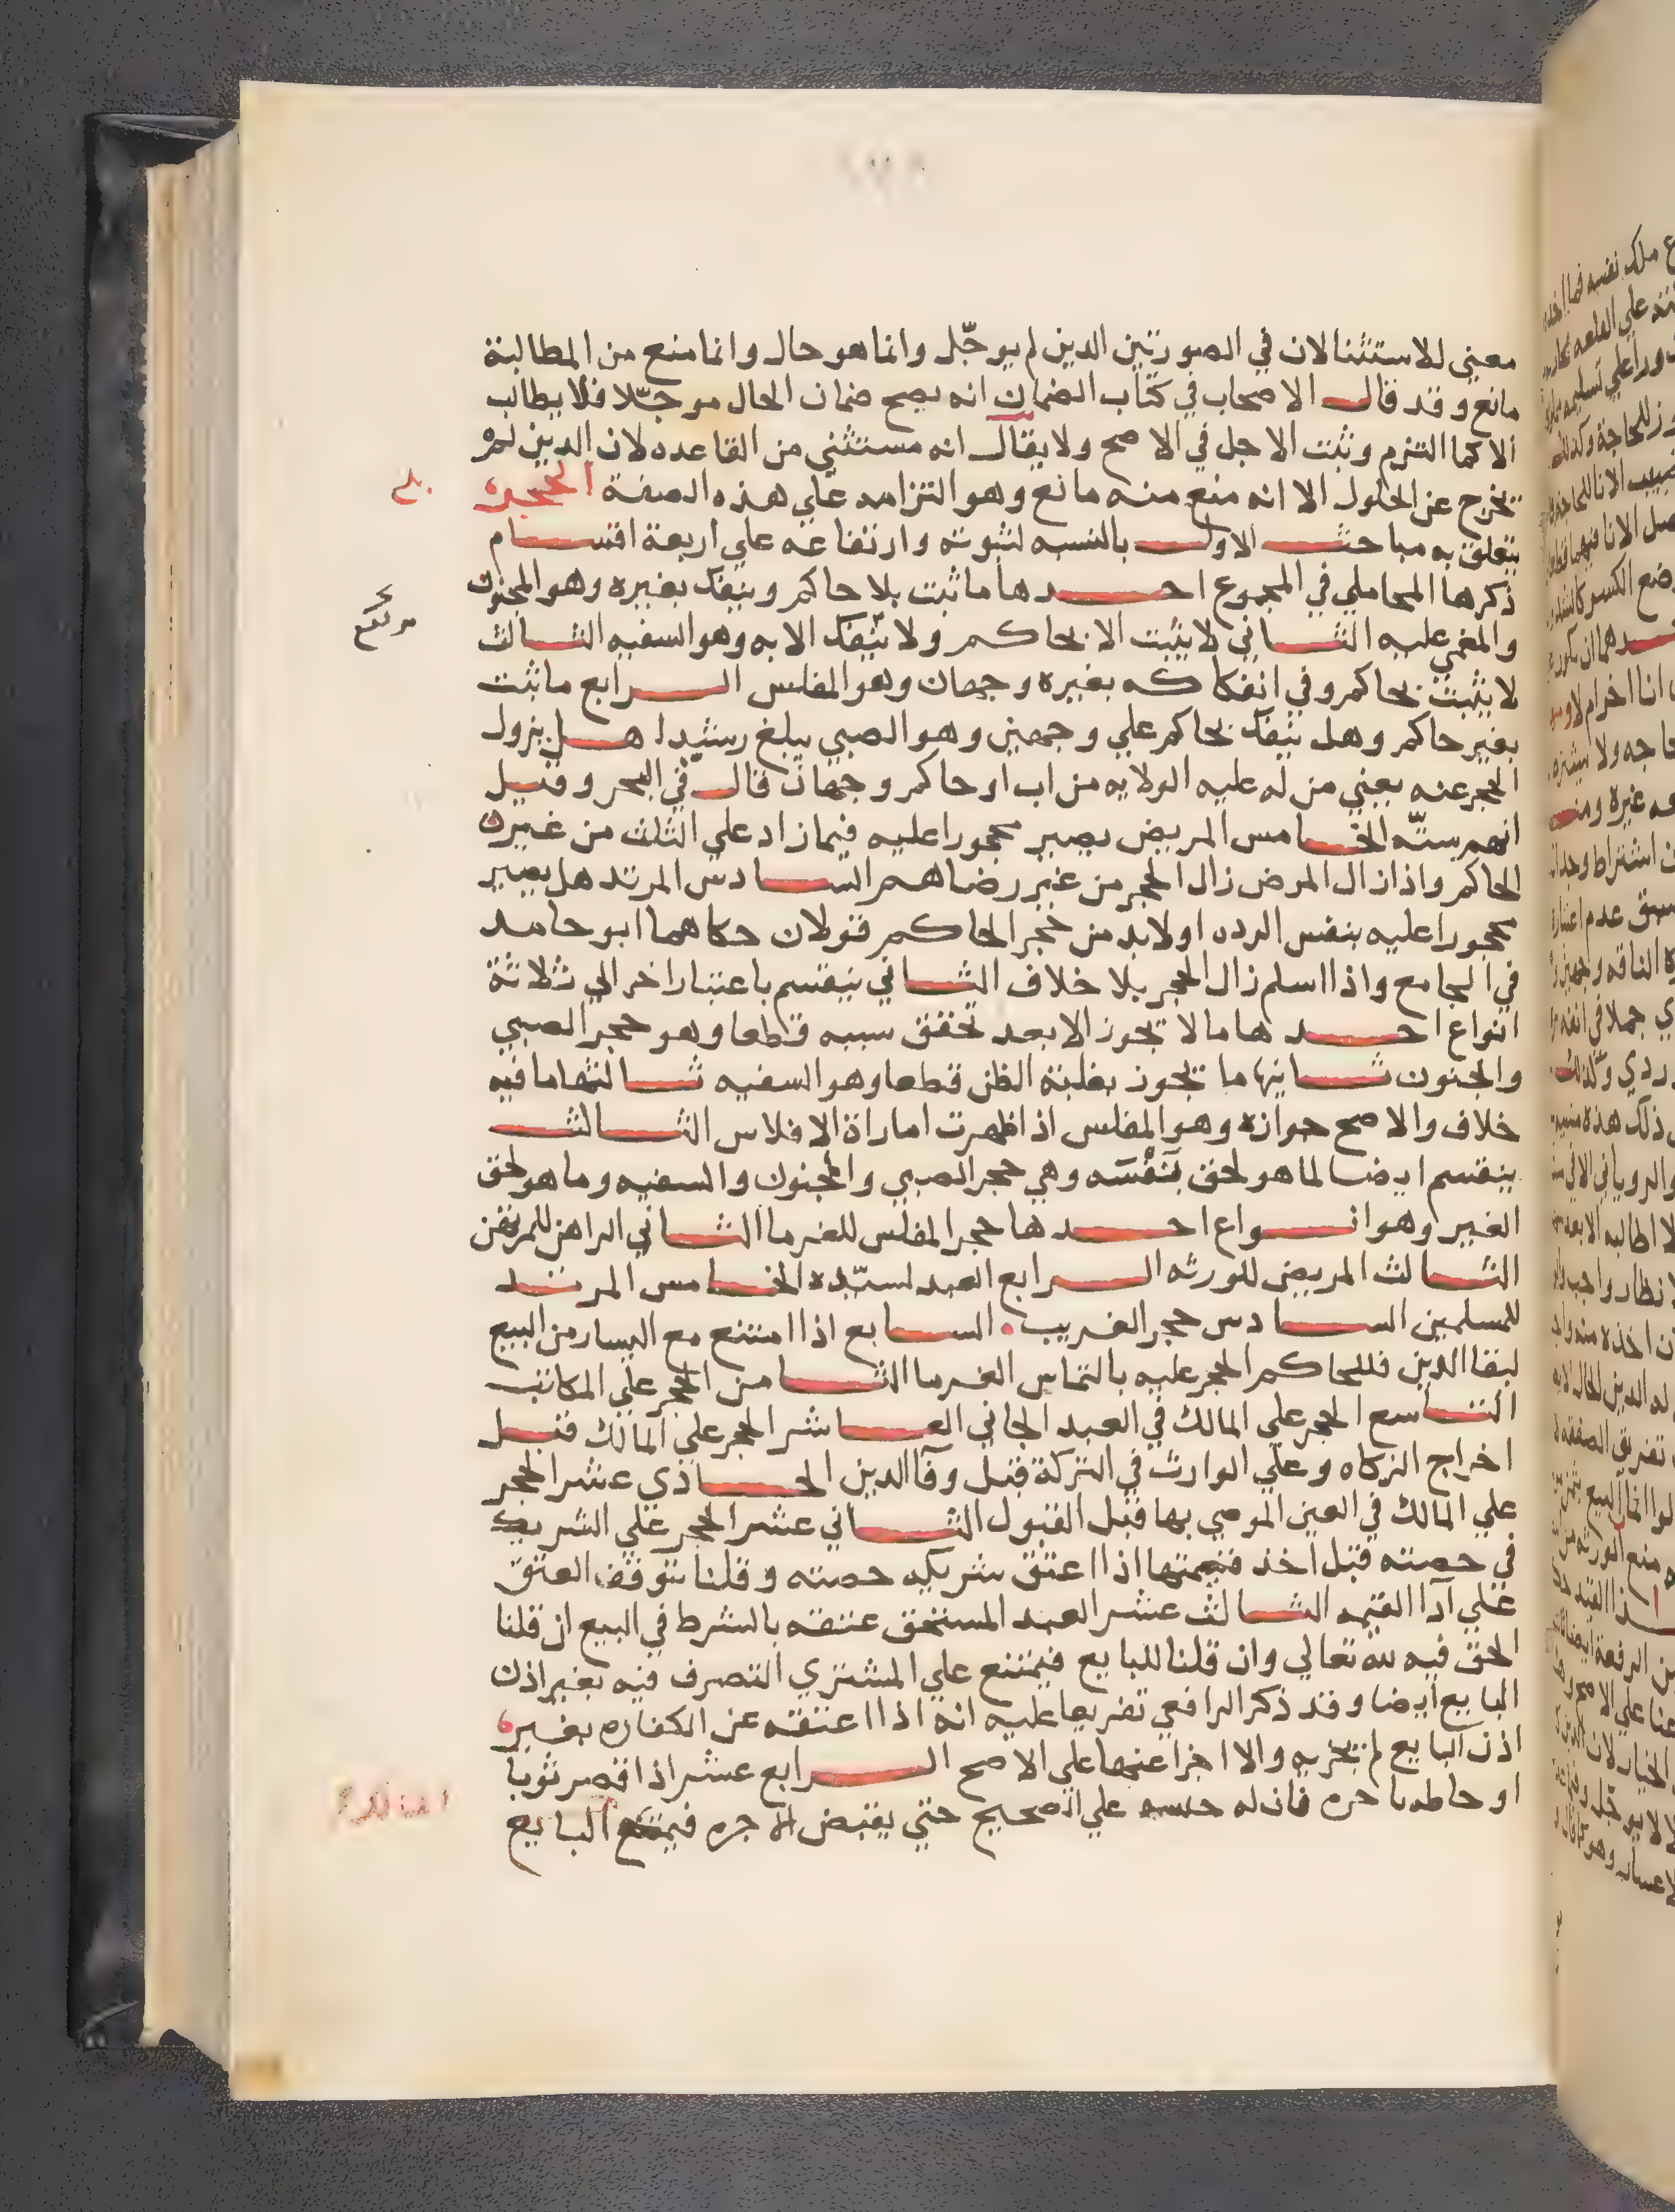 معني للاستثنا لان في الصورتين الدين لم يوجّل وانما هو حال وانما منع من المطالبة
مانع وقد قال الاصحاب في كتاب الضمان انه يصح ضمان الحال موجّلا فلا يطالب
الا كما التزم وثبت الاجل في الاصح ولا يقال انه مستثني من القاعده لان الدين لم
يخرج عن الحلول الا انه منع منه مانع وهو التزامه علي هذه الصفة الحجر
يتعلق به مباحث الاول بالنسبه لثبوته وارتفاعه علي اربعة اقسام
ذكرها المحاملي في المجموع احدها ما ثبت بلا حاكم وينفك بغيره وهو المجنون
والمغمي عليه الثاني لا يثبت الا بحاكم ولا ينفك الا به وهو السفيه الثالث
لا يثبت بحاكم وفي انفكاكه بغيره وجهان وهو المفلس الرابع ما ثبت
بغير حاكم وهل ينفك بحاكم علي وجهين وهو الصبي يبلغ رشيدا هل يزول
الحجر عنه يعني من له عليه الولايه من اب او حاكم وجهان قال في البحر وقيل
انهم ستّه الخامس المريض يصير محجورا عليه فيما زاد علي الثلث من غير
الحاكم واذا زال المرض زال الحجر من غير رضاهم السادس المرتد هل يصير
محجورا عليه بنفس الرده او لابد من حجر الحاكم قولان حكاهما ابو حامد
في الجامع واذا اسلم زال الحجر بلا خلاف الثاني ينقسم باعتبار اخر الي ثلاثة
انواع احدها ما لا يجوز الا بعد تحقق سببه قطعا وهو حجر الصبي
والجنون ثانيها ما يجوز بغلبة الظن قطعا وهو السفيه ثالثها ما فيه
خلاف والاصح جوازه وهو المفلس اذا ظهرت اماراة الافلاس الثالث
ينقسم ايضا لما هو لحق نفسه وهي حجر الصبي والمجنون والسفيه وما هو لحق
الغير وهو انواع احدها حجر المفلس للغرما الثاني الراهن للمرتهن
الثالث المريض للورثه الرابع العبد لسيّده الخامس المرتد
للمسلمين السادس حجر الغريب السابع اذا امتنع مع اليسار من البيع
لبقا الدين فللحاكم الحجر عليه بالتماس الغرما الثامن الحجر علي المكاتب
التاسع الحجر علي المالك في العبد الجاني العاشر الحجر علي المالك قبل
اخراج الزكاه وعلي الوارث في التركة قبل وفا الدين الحادي عشر الحجر
علي المالك في العين الموصي بها قبل القبول الثاني عشر الحجر علي الشريك
في حصته قبل اخذ قيمتها اذا اعتق شريكه حصته وقلنا بتوقف العتق
علي ادا القيمه الثالث عشر العبد المستحق عتقه بالشرط في البيع ان قلنا
الحق فيه لله تعالي وان قلنا للبايع فيمتنع علي المشتري التصرف فيه بغير اذن
البايع ايضا وقد ذكر الرافعي تفريعا عليه انه اذا اعتقه عن الكفاره بغير
اذن البايع لم يجزيه والا اجزا عنها علي الاصح الرابع عشر اذا قصر ثوبا
او خاطه باجره فان له حبسه علي الصحيح حتي يقبض الاجره فيمتنع البايع